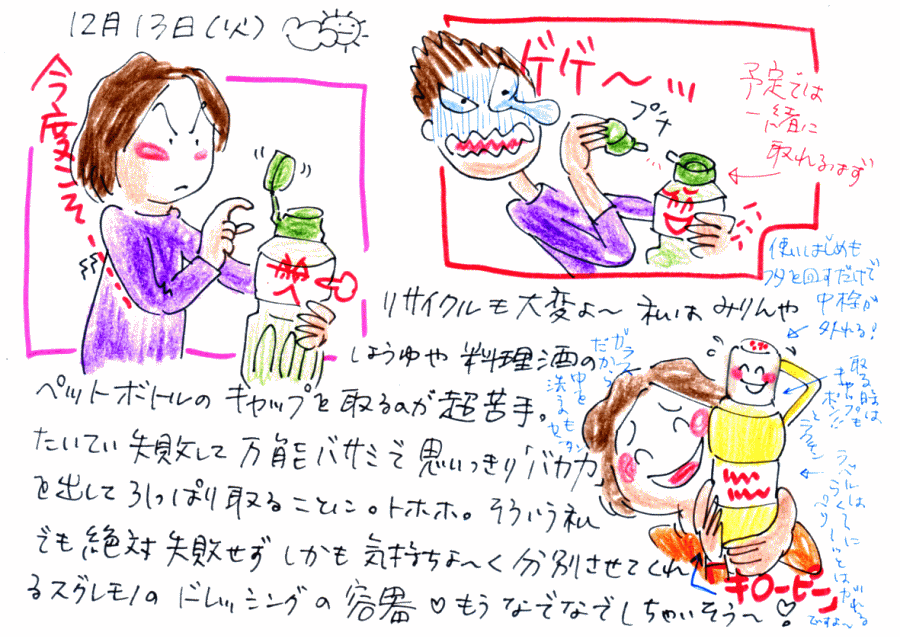 12月13日(火)
今度こそ
ゲゲ〜ッ
プチ
予定では
一緒に
取れるはず
リサイクルも大変よ〜 私は みりんや
しょうゆや 料理酒の
ペットボトルの キャップを取るのが 超苦手。
たいてい 失敗して 万能バサミで 思いっきり「バカ力」
を出して ひっぱり取ることに。トホホ。そういう私
でも 絶対 失敗せず しかも 気持ちよ〜く 分別させてくれ
るスグレモノの ドレッシングの 容器♡もう なでなでしちゃいそう〜♡
使いはじめも
フタを回すだけで
中栓が
外れる!
ガラス
だから
中を
洗うのも
カンタン
取る時は、
キャップも
ポン!!と
ラクチン
ラベルは
らくーに
ペリーッとはがれる
ですよ〜
キユーピー